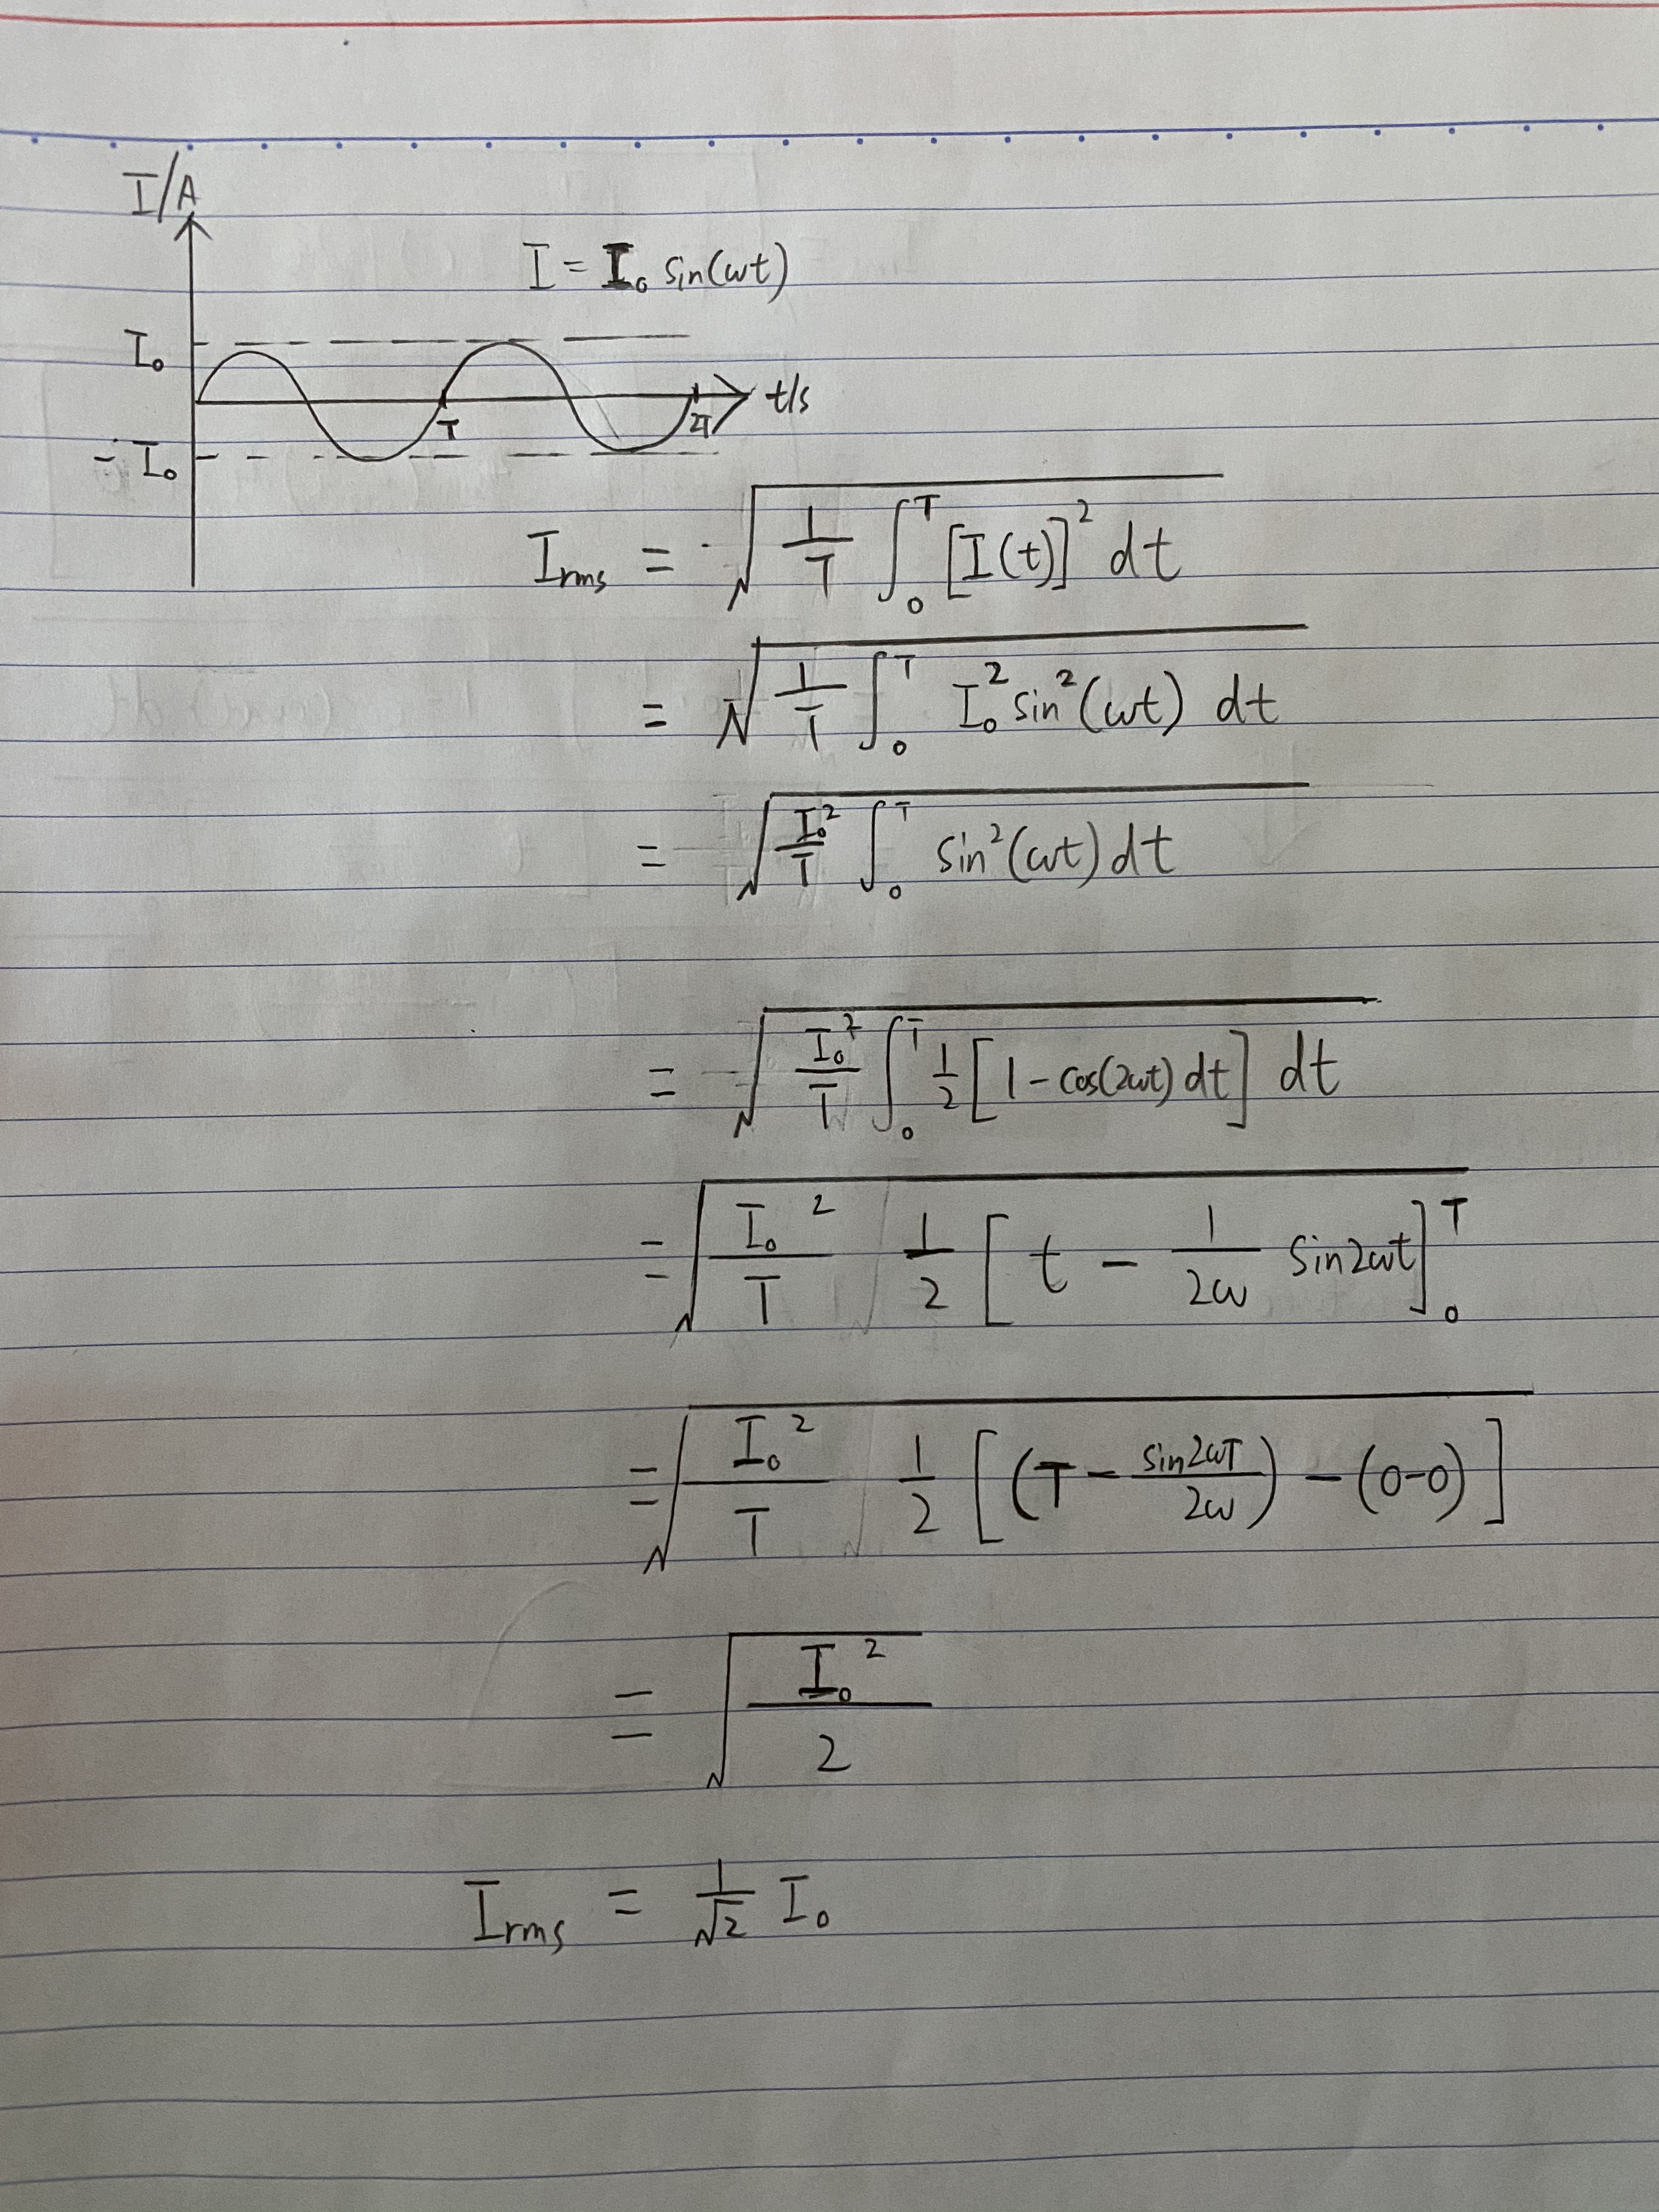 I/A
I = I₀ sin(ωt)
I₀
t/s
T 2T
- I₀
Irms = √(1/T ∫₀ᵀ [I(t)]² dt)
= √(1/T ∫₀ᵀ I₀² sin²(ωt) dt)
= √(I₀²/T ∫₀ᵀ sin²(ωt) dt)
= √(I₀²/T ∫₀ᵀ 1/2 [1 - cos(2ωt) dt] dt)
= √(I₀²/T 1/2 [t - 1/2ω sin2ωt]₀ᵀ)
= √(I₀²/T 1/2 [(T - sin2ωT/2ω) - (0-0)])
= √(I₀²/2)
Irms = 1/√2 I₀